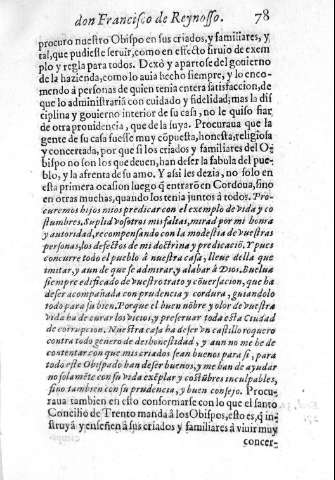 don Francisco de Reynosso. 78
procuro nuestro Obispo en sus criados, y familiares, y
tal, que pudiesse seruir, como en effecto siruio de exem
plo y regla para todos. Dexò y apartose del gouierno
de la hazienda, como lo auia hecho siempre, y lo enco-
mendò â personas de quien tenia entera satisfaccion, de
que lo administrariâ con cuidado y fidelidad; mas la dis
ciplina y gouierno interior de su casa, no le quiso fiar
de otra prouidencia, que de la suya. Procuraua que la
gente de su casa fuesse muy cõpuesta, honesta, religiosa
y concertada, por que si los criados y familiares del O-
bispo no son los que deuen, han deser la fabula del pue-
blo, y la afrenta de su amo. Y asi les dezia, no solo en
esta primera ocasion luego q̃ entrarõ en Cordoua, sino
en otras muchas, quando los tenia juntos à todos. Pro
curemos hijos mios predicar con el exemplo de vida y co
stumbres, Suplid vosotros mis faltas, mirad por mi honra
y autoridad, recompensando con la modestia de vuestras
personas, los defectos de mi doctrina y predicaciõ. Y pues
concurre todo el pueblo â nuestra casa, lleue della que
imitar, y aun de que se admirar, y alabar â Dios. Buelua
siempre edificado de vuestro trato y cõuersacion, que ha
deser acompañada con prudencia y cordura, guiandolo
todo para su bien. Porque el buen nõbre y olor de vuestra
vida ha de curar los vicios, y preseruar toda esta Ciudad
de corrupcion. Nuestra casa ha deser vn castillo roquero
contra todo genero de deshonestidad, y aun no me he de
contentar con que mis criados sean buenos para si, para
todo este Obispado han deser buenos, y me han de ayudar
no solamẽte con su vida exẽplar y costũbres inculpables,
sino tambien con su prudencia, y buen consejo. Procu-
raua tambien en esto conformarse con lo que el santo
Concilio de Trento manda â los Obispos, esto es, q̃ in
struyã y enseñen â sus criados y familiares â viuir muy
concer-